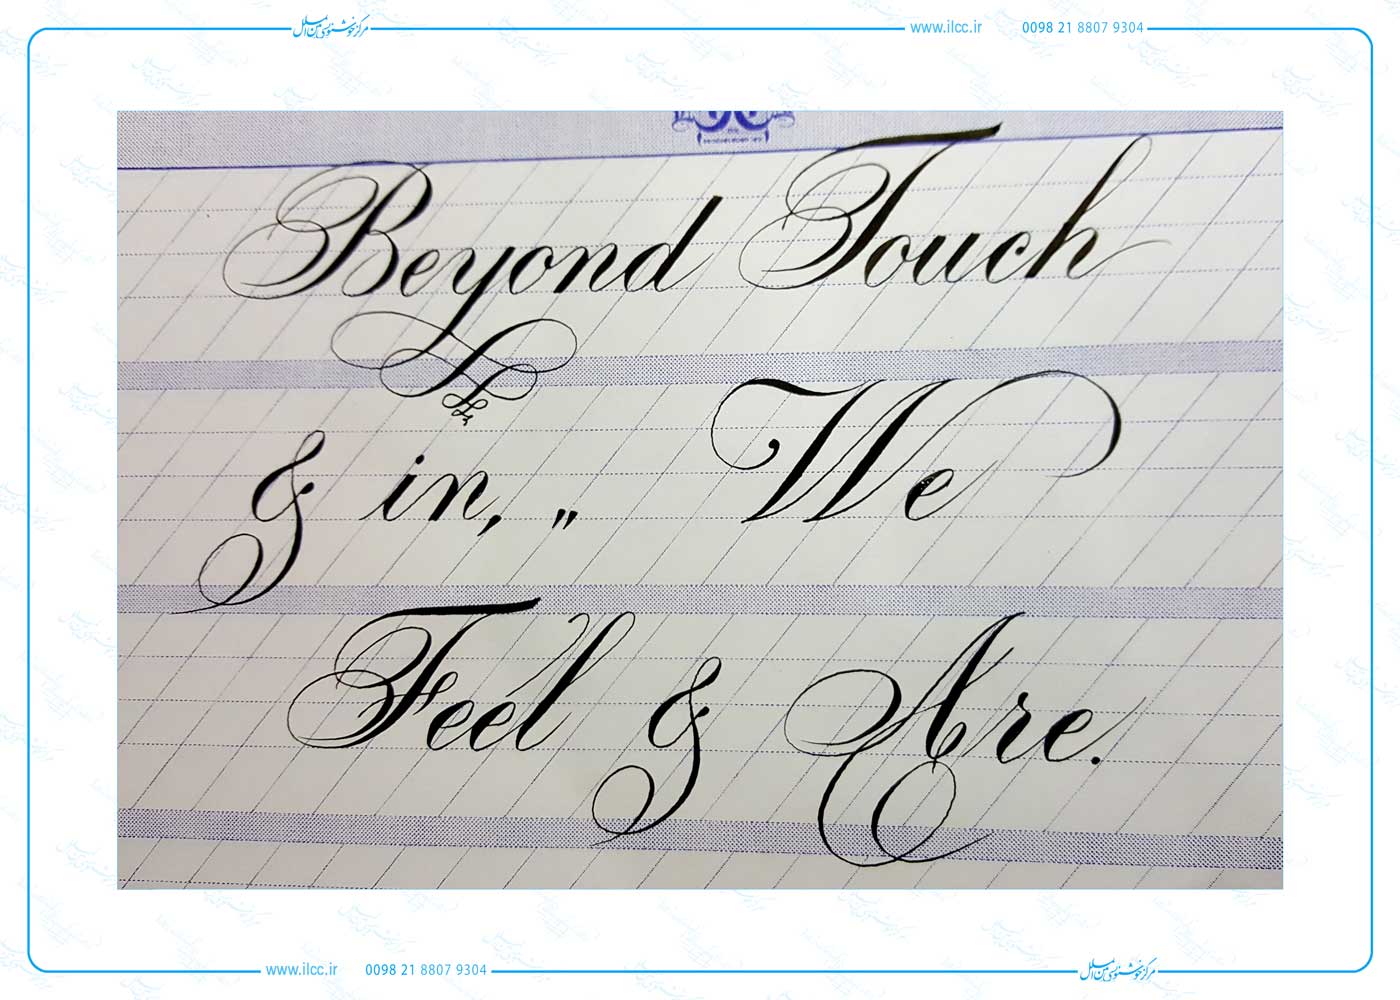 مرکز خوشنویسی بین الملل www.ilcc.ir 0098 21 8807 9304
Beyond Touch
& in, „ We
Feel & Are.
www.ilcc.ir 0098 21 8807 9304 مرکز خوشنویسی بین الملل